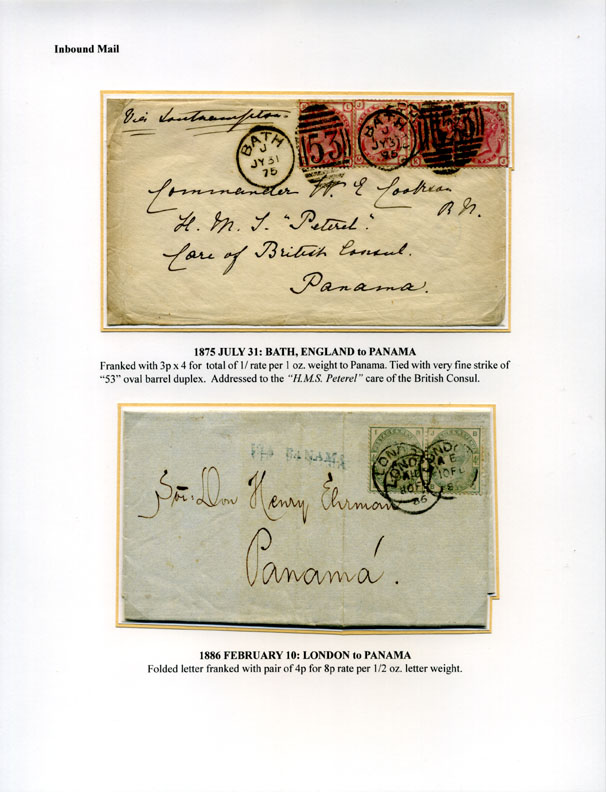 Inbound Mail
Via Southampton
BATH
J
JY 31
75
53
BATH
J
JY 31
75
53
Commander W. E. Cookson
R.N.
H. M. S. "Peterel".
Care of British Consul.
Panama.
1875 JULY 31: BATH, ENGLAND to PANAMA
Franked with 3p x 4 for total of 1/ rate per 1 oz. weight to Panama. Tied with very fine strike of
"53" oval barrel duplex. Addressed to the "H.M.S. Peterel" care of the British Consul.
VIA PANAMA
LONDON
LONDON
86
Sor. Don Henry Ehrman
Panamá.
1886 FEBRUARY 10: LONDON to PANAMA
Folded letter franked with pair of 4p for 8p rate per 1/2 oz. letter weight.